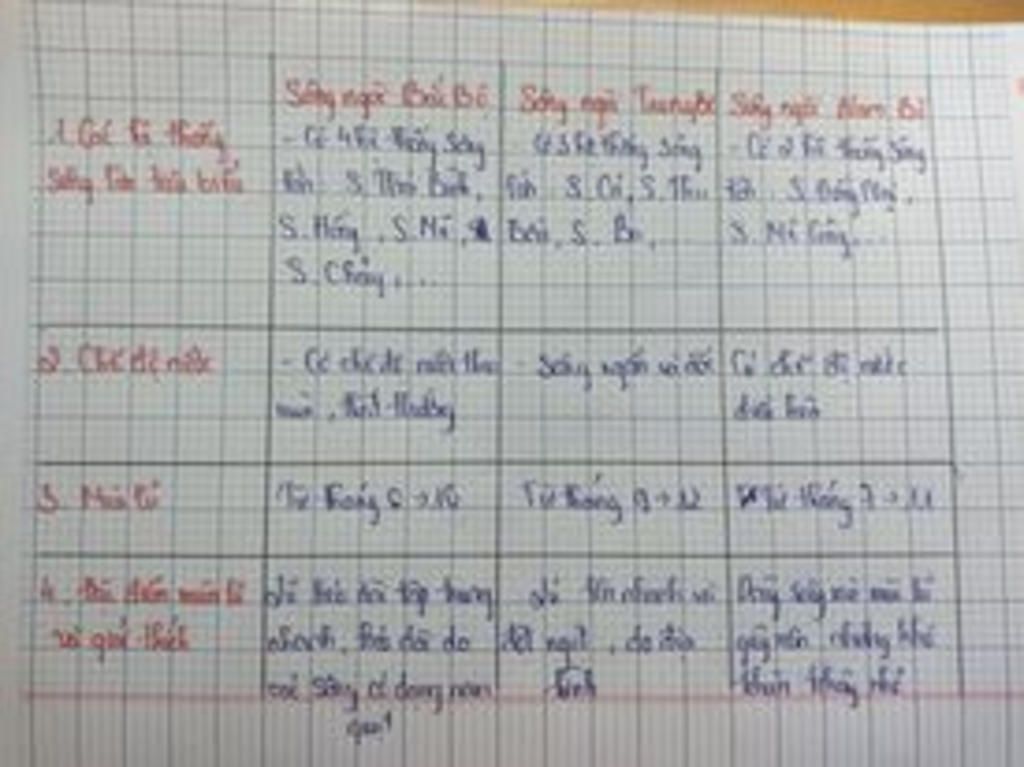 Sông ngòi Bắc Bộ
Sông ngòi Trung Bộ
Sông ngòi Nam Bộ
1. Các hệ thống
sông lớn tiêu biểu
- Có 4 hệ thống sông
lớn S. Thái Bình,
S. Hồng, S. Mã,
S. Chảy,...
Có 3 hệ thống sông
lớn S. Cả, S. Thu
Bồn, S. Ba,
- Có 2 hệ thống sông
lớn S. Đồng Nai,
S. Mê Công,...
2. Chế độ nước
- Có chế độ nước theo
mùa, thất thường
- Sông ngắn và dốc
Có chế độ nước
điều hoà
3. Mùa lũ
Từ tháng 6 → 10
Từ tháng 9 → 12
Từ tháng 7 → 11
4. Đặc điểm mùa lũ
và giải thích
Lũ kéo dài tập trung
nhanh, kéo dài do
các sông có dạng nan
quạt
Lũ lên nhanh và
đột ngột, do địa
hình
mùa lũ
gây nên những khó
khăn không nhỏ